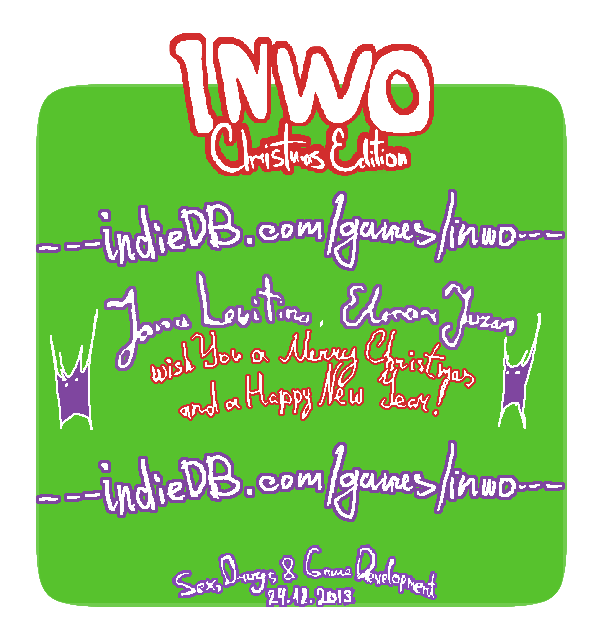 INWO
Christmas Edition
---indieDB.com/games/inwo---
Jana Levitina, Elman Yuzan
wish You a Merry Christmas
and a Happy New Year!
---indieDB.com/games/inwo---
Sex, Drugs & Game Development
29.12.2013